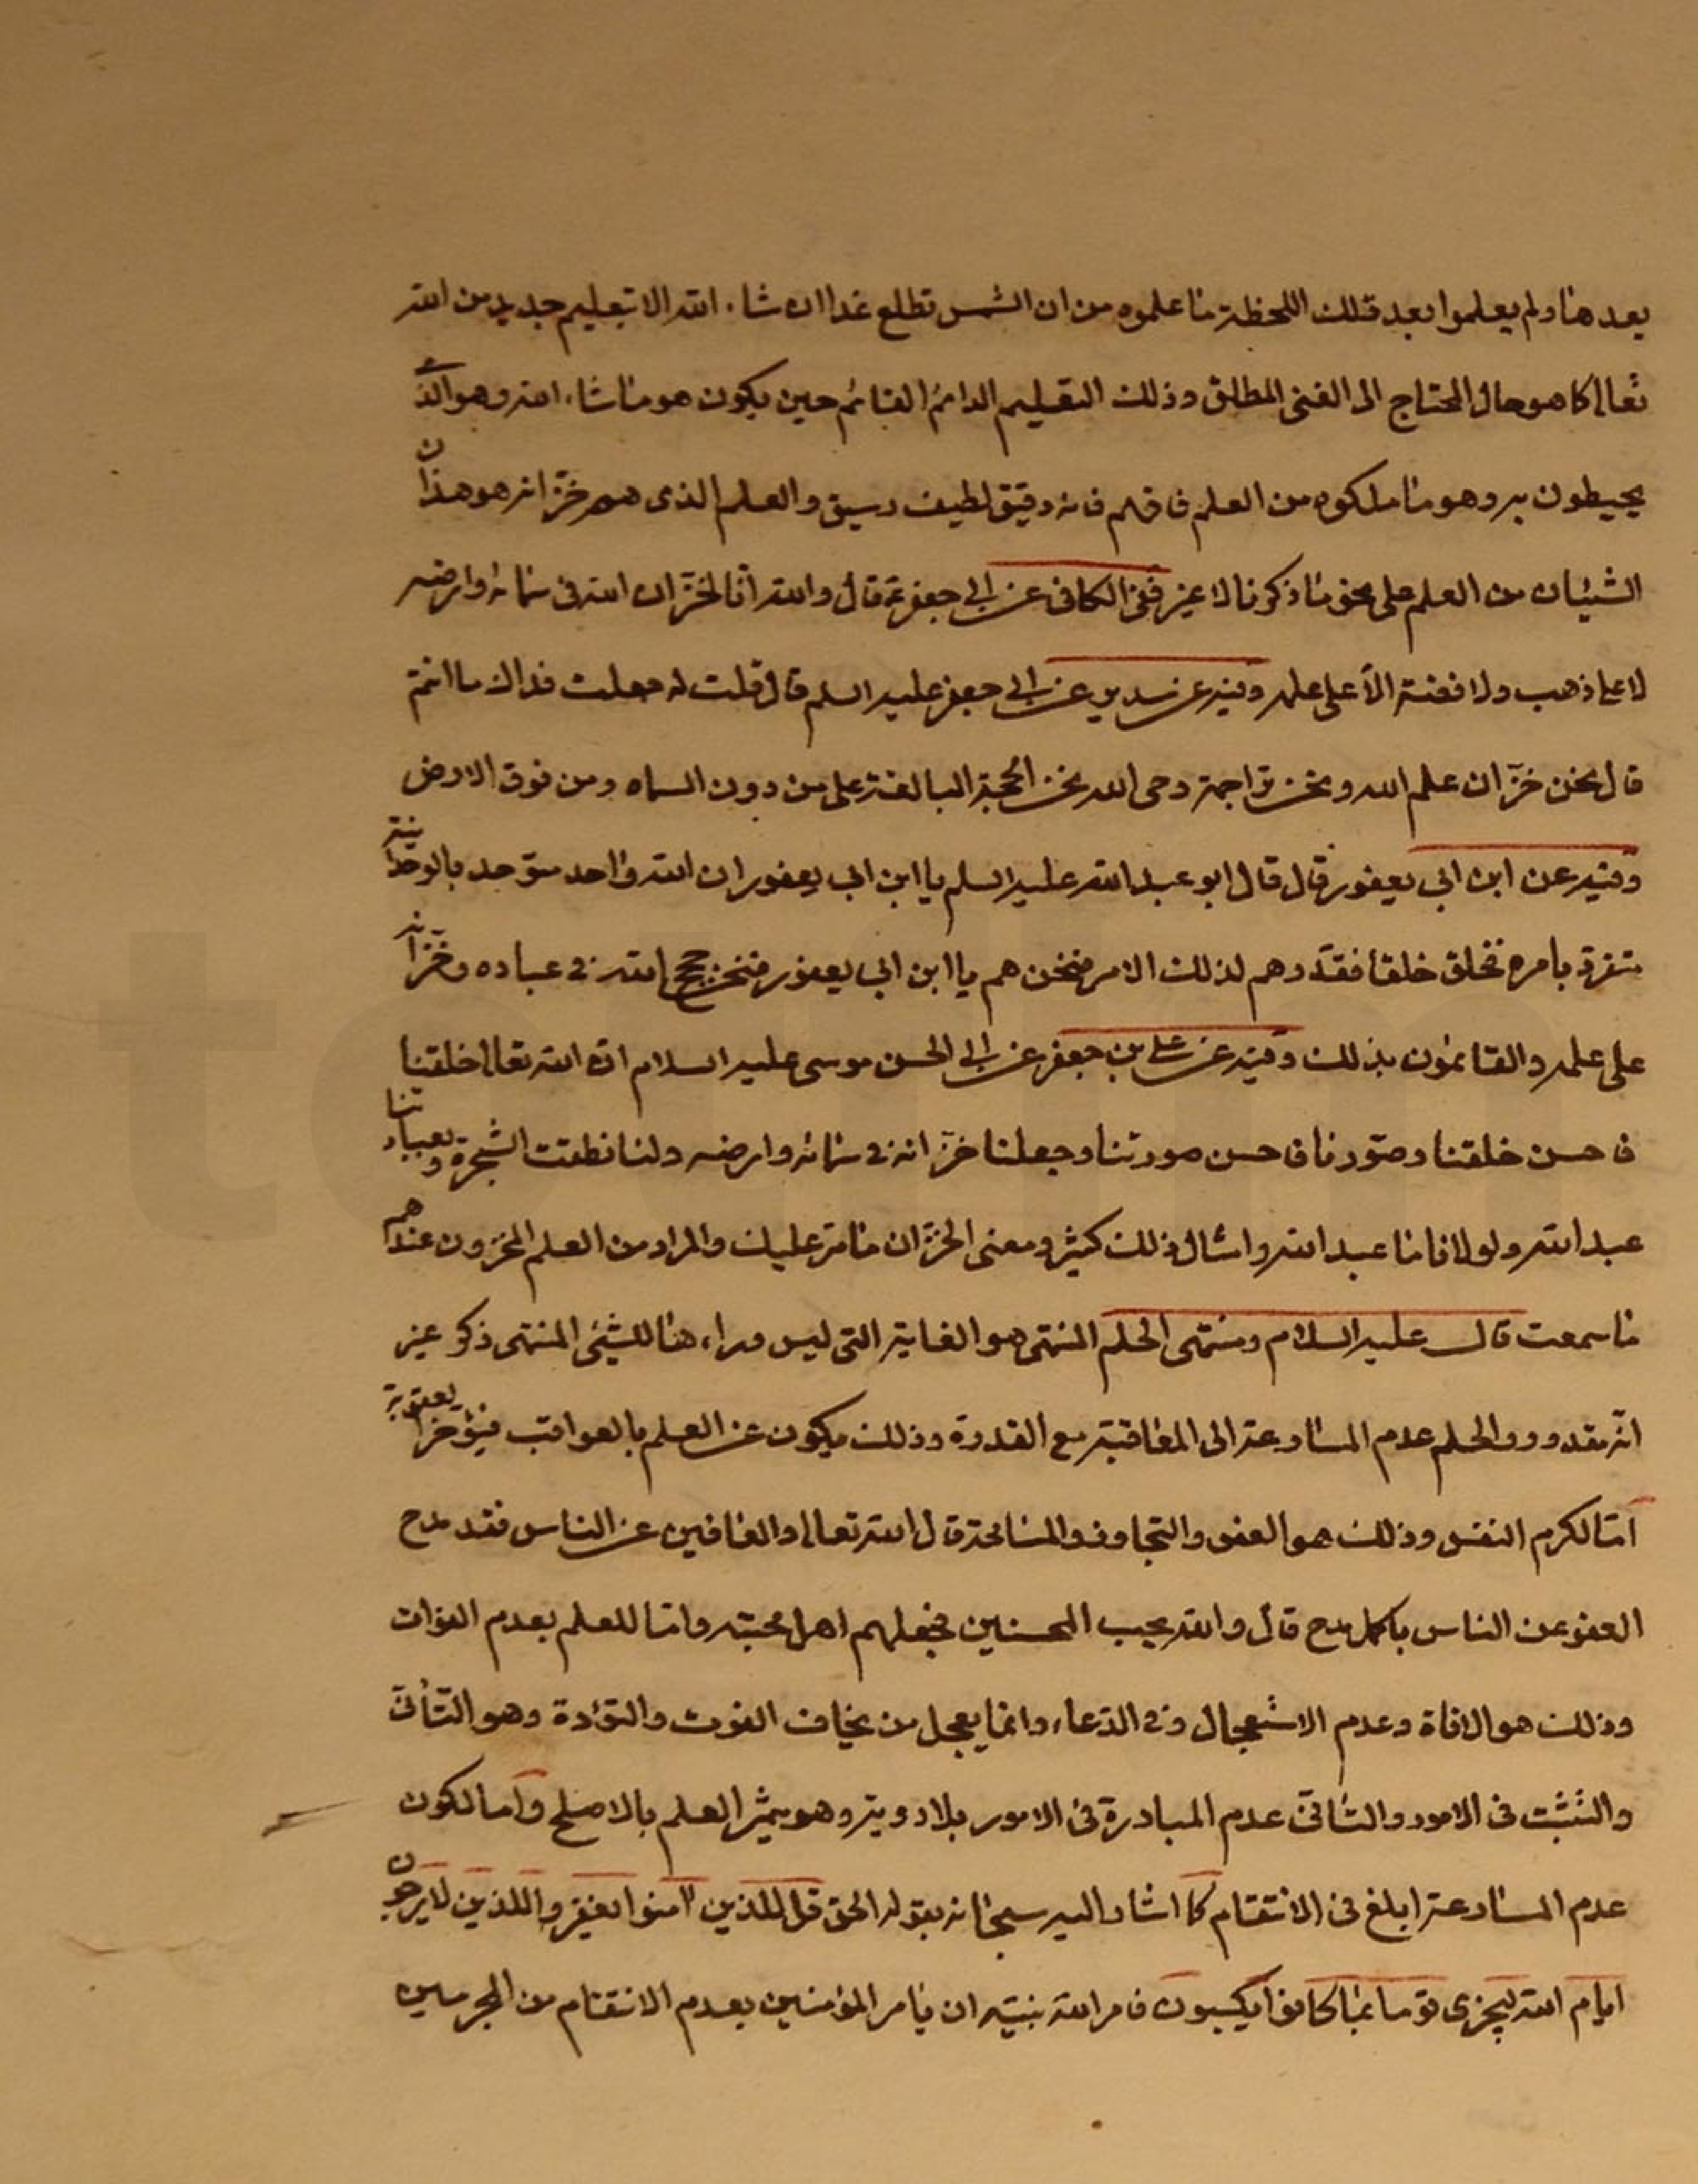 بعدها ولم يعلموا بعد تلك اللحظة ما علموه من ان الشمس تطلع غدا ان شاء الله الا بتعليم جديد من الله
تعالى كما هو حال المحتاج الى الغنى المطلق وذلك التعليم الدائم القائم حين يكون هو ما شاء الله وهو الذى
يحيطون به وهو ما ملكوه من العلم فافهم فانه دقيق لطيف رسيق والعلم الذى هم خزانه هو هذان
الشيئان من العلم على نحو ما ذكرنا لا غير ففى الكافى عن ابى جعفر ع قال والله انا لخزان الله فى سمائه وارضه
لا على ذهب ولا فضة الا على علمه وفيه عن سدير عن ابى جعفر عليه السلم قال قلت له جعلت فداك ما انتم
قال نحن خزان علم الله ونحن تراجمة وحى الله نحن الحجة البالغة على من دون السماء ومن فوق الارض
وفيه عن ابن ابى يعفور قال قال ابو عبد الله عليه السلم يا ابن ابى يعفور ان الله واحد متوحد بالوحدانية
متفرد بامره فخلق خلقا فقدرهم لذلك الامر فنحن هم يا ابن ابى يعفور فنحن حجج الله فى عباده وخزانه
على علمه والقائمون بذلك وفيه عن على بن جعفر عن ابى الحسن موسى عليه السلام ان الله تعالى خلقنا
فاحسن خلقنا وصورنا فاحسن صورتنا وجعلنا خزانه فى سمائه وارضه ولنا نطقت الشجرة وبعبادتنا
عبد الله ولولانا ما عبد الله وامثال ذلك كثير ومعنى الخزان ما مر عليك والمراد من العلم المخزون عندهم
ما سمعت قال عليه السلام ومنتهى الحلم المنتهى هو الغاية التى ليس وراءها للشيئ المنتهى ذكر غير
انه مقدور والحلم عدم المسارعة الى المعاقبة مع القدرة وذلك يكون عن العلم بالعواقب فيؤخر العقوبة
اما لكرم النفس وذلك هو العفو والتجاوز والمسامحة قال الله تعالى والعافين عن الناس فقد مدح
العفو عن الناس باكمل مدح قال والله يحب المحسنين فجعلهم اهل محبته واما للعلم بعدم الفوات
وذلك هو الاناة وعدم الاستعجال وفى الدعاء وانما يعجل من يخاف الفوت والتؤدة وهو التأنى
والتثبت فى الامور والتانى عدم المبادرة فى الامور بلا روية وهو يثمر العلم بالاصلح واما لكون
عدم المسارعة ابلغ فى الانتقام كما اشار اليه سبحانه بقوله الحق قل للذين امنوا يغفروا للذين لا يرجون
ايام الله ليجزى قوما بما كانوا يكسبون فامر الله نبيه ان يامر المؤمنين بعدم الانتقام من المجرمين